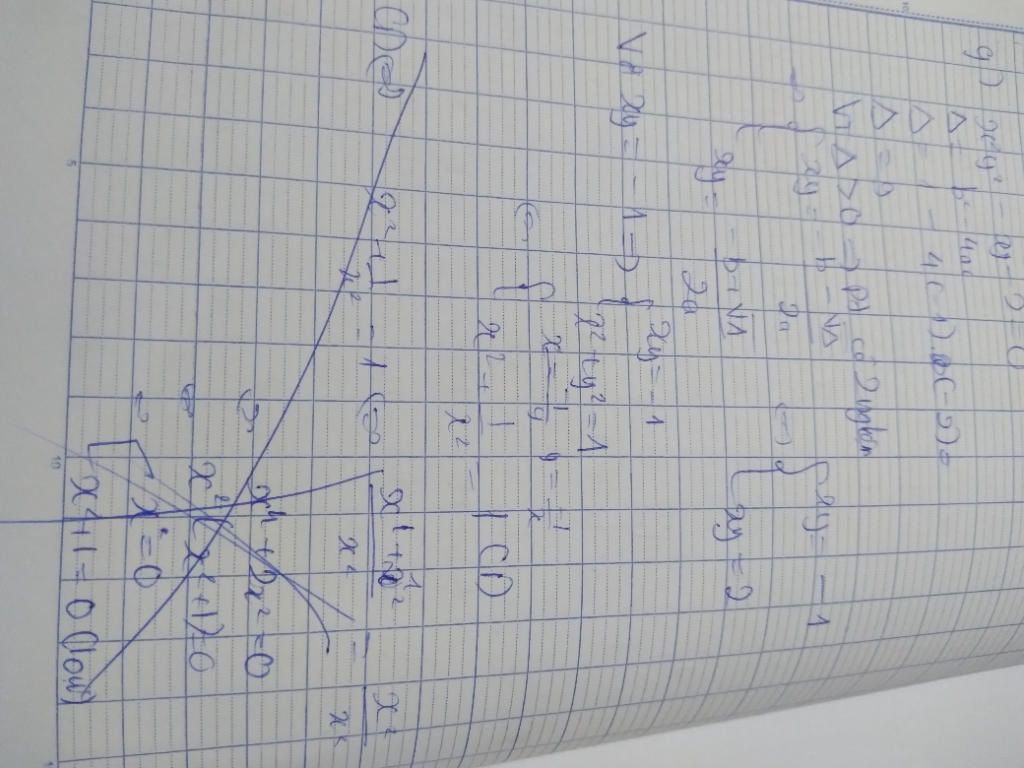 g) x²y² - xy - 2 = 0
Δ = b² - 4ac
Δ = 1 - 4(-1).(-2) =
Δ = 9
Vì Δ > 0 => Pt có 2 nghiệm
xy = -b - √Δ / 2a <=> xy = -1
xy = -b + √Δ / 2a xy = 2
Với xy = -1 => { xy = -1
x² + y² = 1
<=> { x = -1/y y = -1/x
x² + 1/x² = 1 (1)
(1) <=> x² + 1/x² = 1 <=> x⁴ + 1/x² = x²/x²
<=> x⁴ + 2x² = 0
<=> x²(x² + 1) = 0
<=> x² = 0
x² + 1 = 0 (loại)